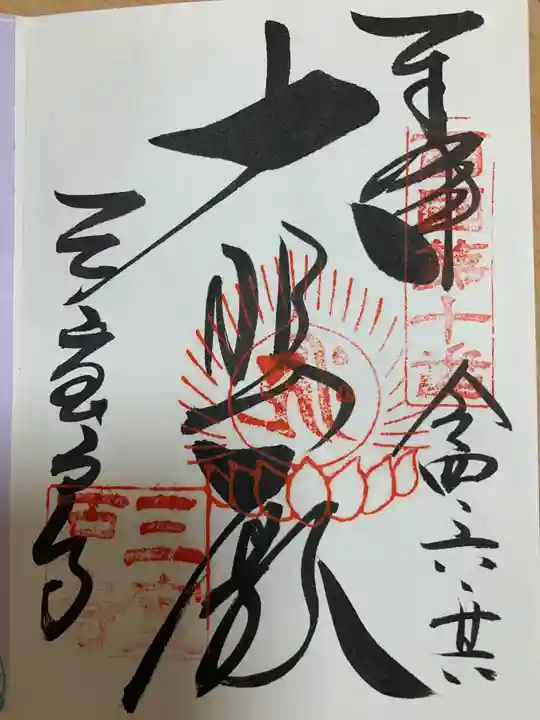 奉拝
西国第十番
令四、六、廿
大悲殿
三室戸寺